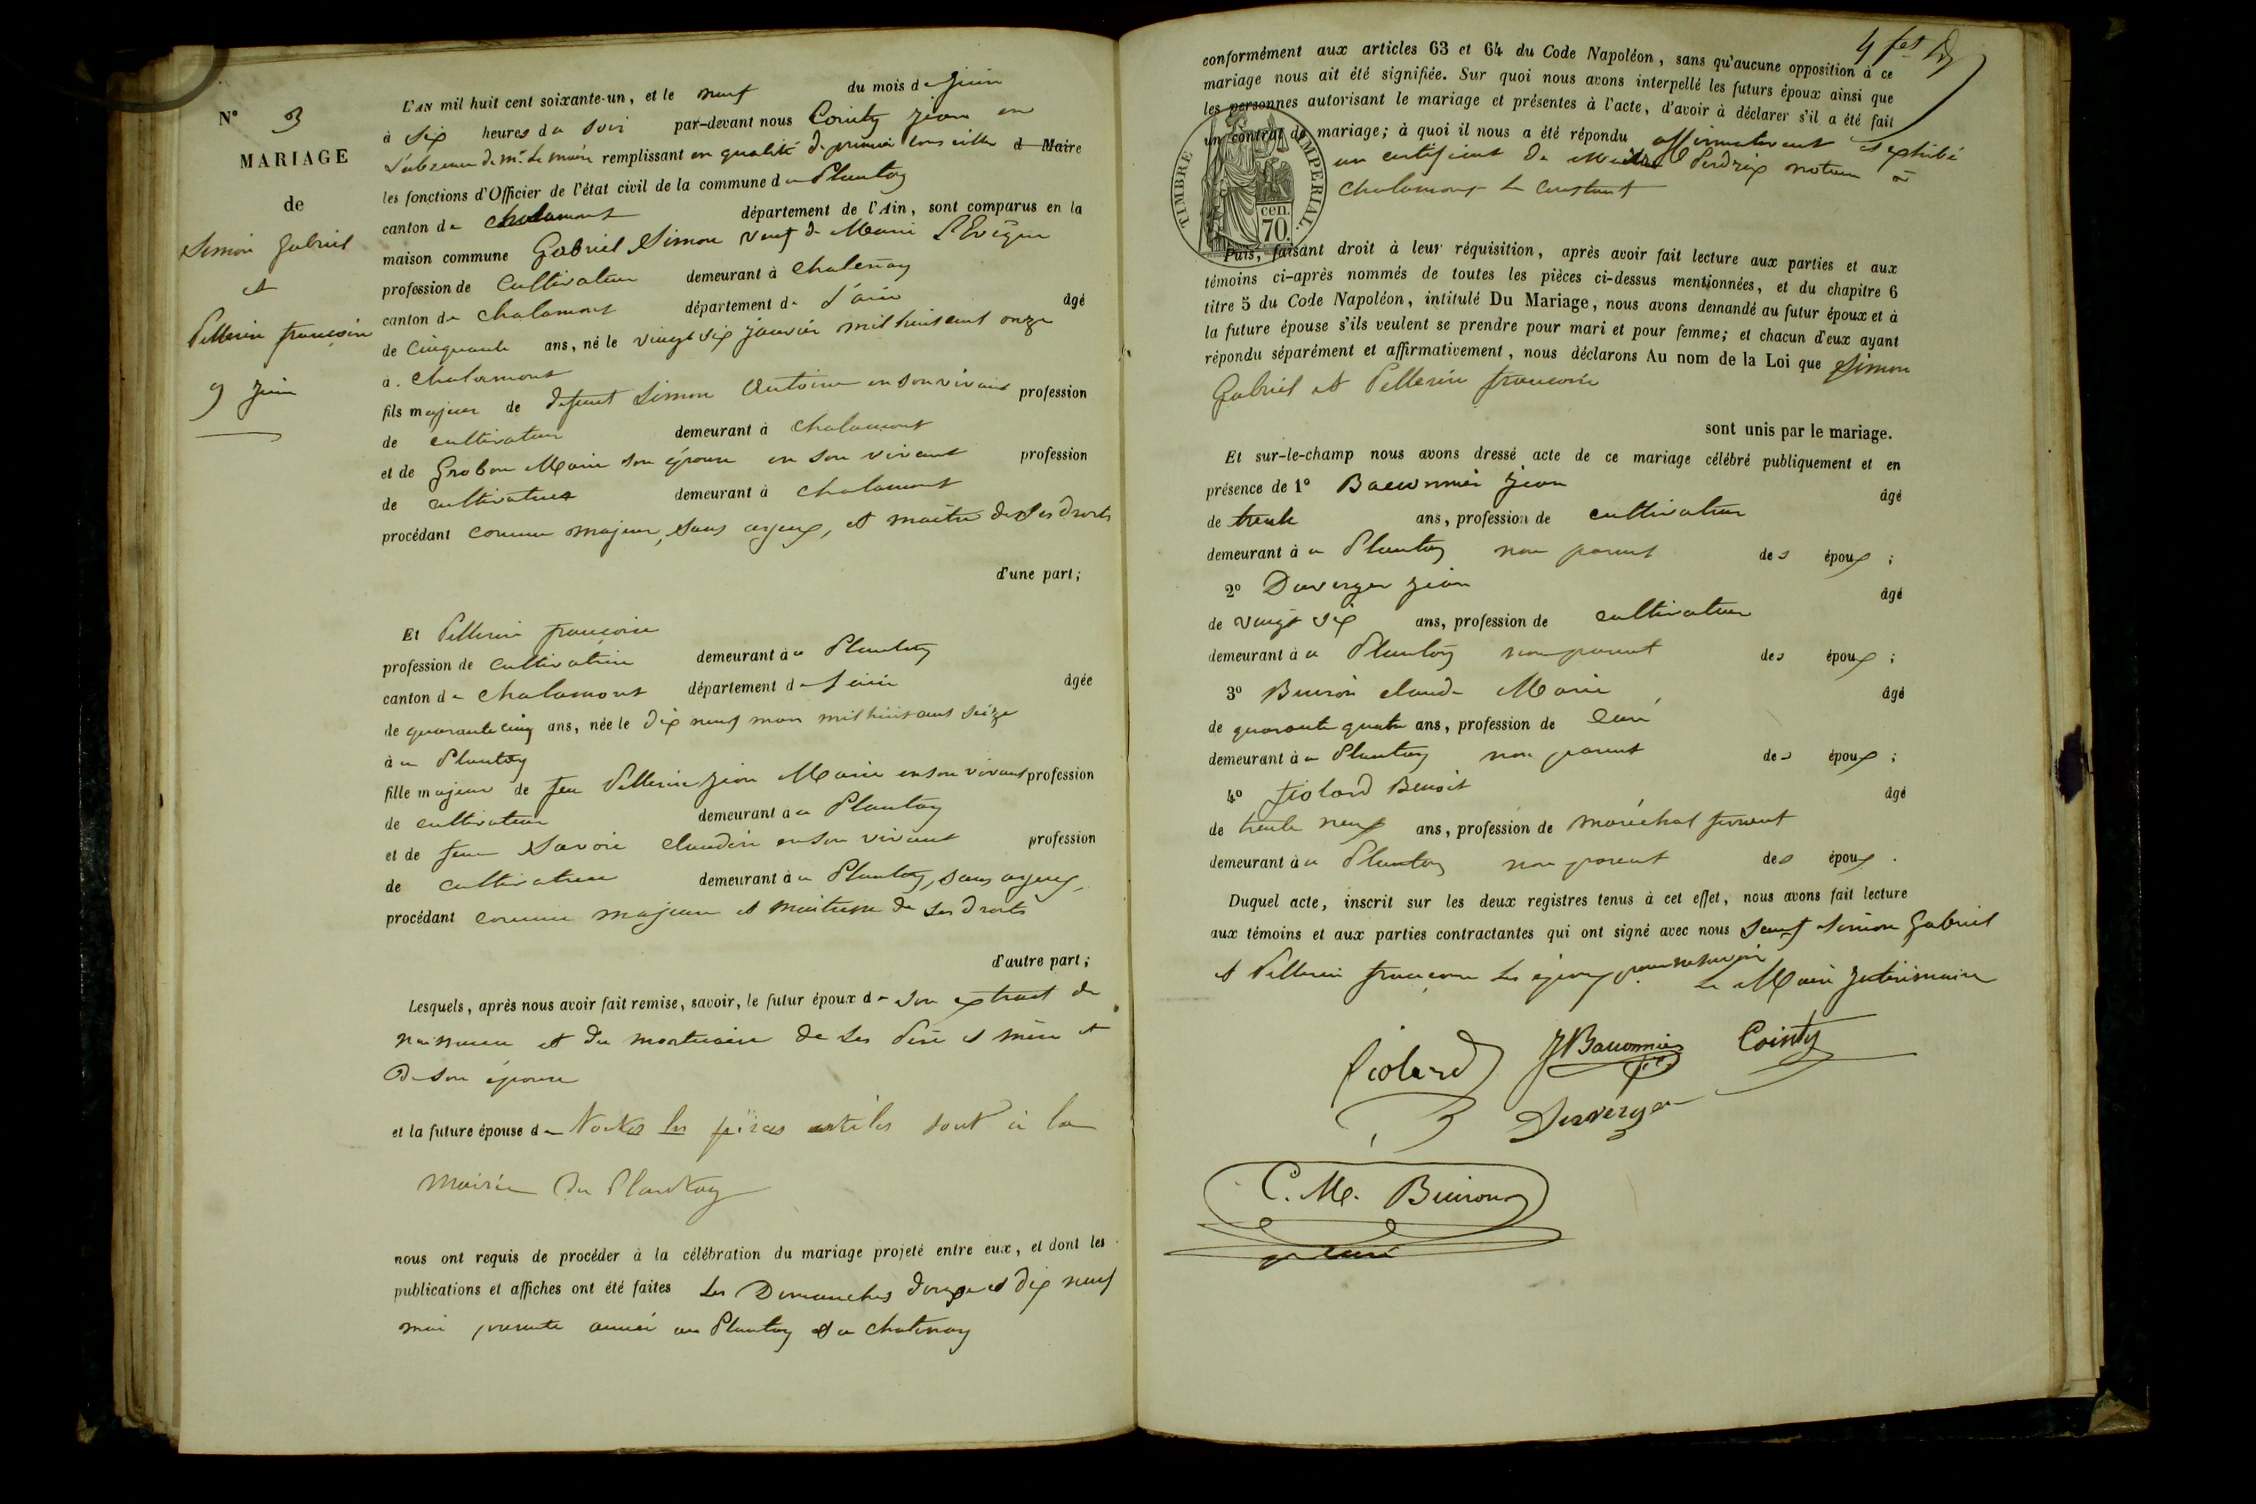 N° 3
MARIAGE
de
Simon Gabriel
et
Pellerin françoise
9 Juin
L'AN mil huit cent soixante-un, et le neuf du mois de Juin
à Six heures du soir par-devant nous Cointy Jean en
l'absence de Mr. le maire remplissant en qualité de premier conseiller d Maire
les fonctions d'Officier de l'état civil de la commune du Plantay
canton de chalamont département de l'Ain, sont comparus en la
maison commune Gabriel Simon veuf de Marie L'Evêque
profession de Cultivateur demeurant à Chatenay
canton de Chalamont département de l'ain âgé
de Cinquante ans, né le vingt six janvier mil huit cent onze
à Chalamont
fils majeur de defunt Simon Antoine en son vivant profession
de cultivateur demeurant à Chalamont
et de Grobon Marie son épouse en son vivant profession
de cultivatrice demeurant à Chalamont
procédant comme majeur, sans ayeux, et maître de ses droits
d'une part;
Et Pellerin françoise
profession de cultivatrice demeurant à au Plantay
canton de Chalamont département de l'ain âgée
de quarante cinq ans, née le dix neuf mars mil huit cent seize
à au Plantay
fille majeur de feu Pellerin Jean Marie en son vivant profession
de cultivateur demeurant à au Plantay
et de feue Savoie claudine en son vivant profession
de cultivatrice demeurant à au Plantay, sans ayeux,
procédant comme majeure et maitresse de ses droits
d'autre part;
Lesquels, après nous avoir fait remise, savoir, le futur époux de son extrait de
naissance et du mortuaire de ses Père et mère et
De son épouse
et la future épouse de Toutes les pièces utiles sont à la
Mairie du Plantay
nous ont requis de procéder à la célébration du mariage projeté entre eux, et dont les
publications et affiches ont été faites les Dimanches douze et dix neuf
mai présente année au Plantay et a Chatenay
4 fet
conformément aux articles 63 et 64 du Code Napoléon, sans qu'aucune opposition à ce
mariage nous ait été signifiée. Sur quoi nous avons interpellé les futurs époux ainsi que
les personnes autorisant le mariage et présentes à l'acte, d'avoir à déclarer s'il a été fait
un contrat de mariage; à quoi il nous a été répondu affirmativement et exhibé
un certificat de Maître Perdrix notaire à
Chalamont le constant
TIMBRE IMPERIAL.
cen.
70.
Puis, faisant droit à leur réquisition, après avoir fait lecture aux parties et aux
témoins ci-après nommés de toutes les pièces ci-dessus mentionnées, et du chapitre 6
titre 5 du Code Napoléon, intitulé Du Mariage, nous avons demandé au futur époux et à
la future épouse s'ils veulent se prendre pour mari et pour femme; et chacun d'eux ayant
répondu séparément et affirmativement, nous déclarons Au nom de la Loi que Simon
Gabriel et Pellerin françoise
sont unis par le mariage.
Et sur-le-champ nous avons dressé acte de ce mariage célébré publiquement et en
présence de 1° Baconnier Jean âgé
de trente ans, profession de cultivateur
demeurant à au Plantay non parent des époux ;
2° Duverger Jean âgé
de vingt six ans, profession de cultivateur
demeurant à au Plantay non parent des époux ;
3° Buiron claude Marie âgé
de quarante quatre ans, profession de Curé
demeurant à au Plantay non parent des époux ;
4° fiolard Benoit âgé
de trente neuf ans, profession de maréchal ferrant
demeurant à au Plantay non parent des époux .
Duquel acte, inscrit sur les deux registres tenus à cet effet, nous avons fait lecture
aux témoins et aux parties contractantes qui ont signé avec nous sauf Simon Gabriel
et Pellerin françoise les époux pour ne savoir
Le Maire Intérimaire
fiolard JBaconnier Cointy
Duverger
C. M. Buiron
curé